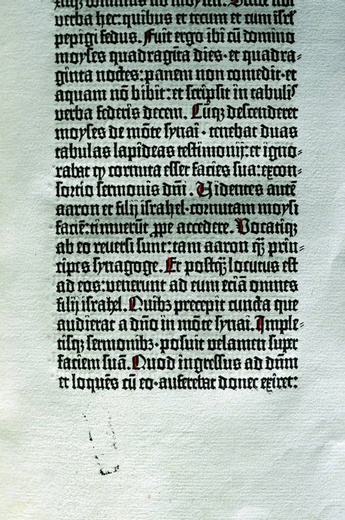 xitq̃ dominus ad moysen. Scribe tibi
verba hec: quibus et tecum et cum isrl̃
pepigi fedus. Fuit ergo ibi cū domino
moyses quadragĩta dies· et quadra⸗
gĩnta noctes: panem non comedit· et
aquam nõ bibit: et scripsit in tabulis
verba federis decem. Cũq̃ descenderet
moyses de mõte synai· tenebat duas
tabulas lapideas testimonij: et igno⸗
rabat ꝙ cornuta esset facies sua: ex con⸗
sortio sermonis dñi. Videntes autẽ
aaron et filij israhel· cornutam moysi
faciẽ: timuerũt ꝓpe accedere. Vocatiq̃
ab eo reversi sunt: tam aaron q̃ꝫ prin⸗
cipes synagoge. Et postq̃ꝫ locutus est
ad eos: venerunt ad eum eciã omnes
filij israhel. Quibꝫ precepit cuncta que
audierat a dño in mõte synai. Imple⸗
tisq̃ sermonibꝫ· posuit velamen super
faciem suã. Quod ingressus ad dñm
et loquẽs cũ eo· auferebat donec exiret: